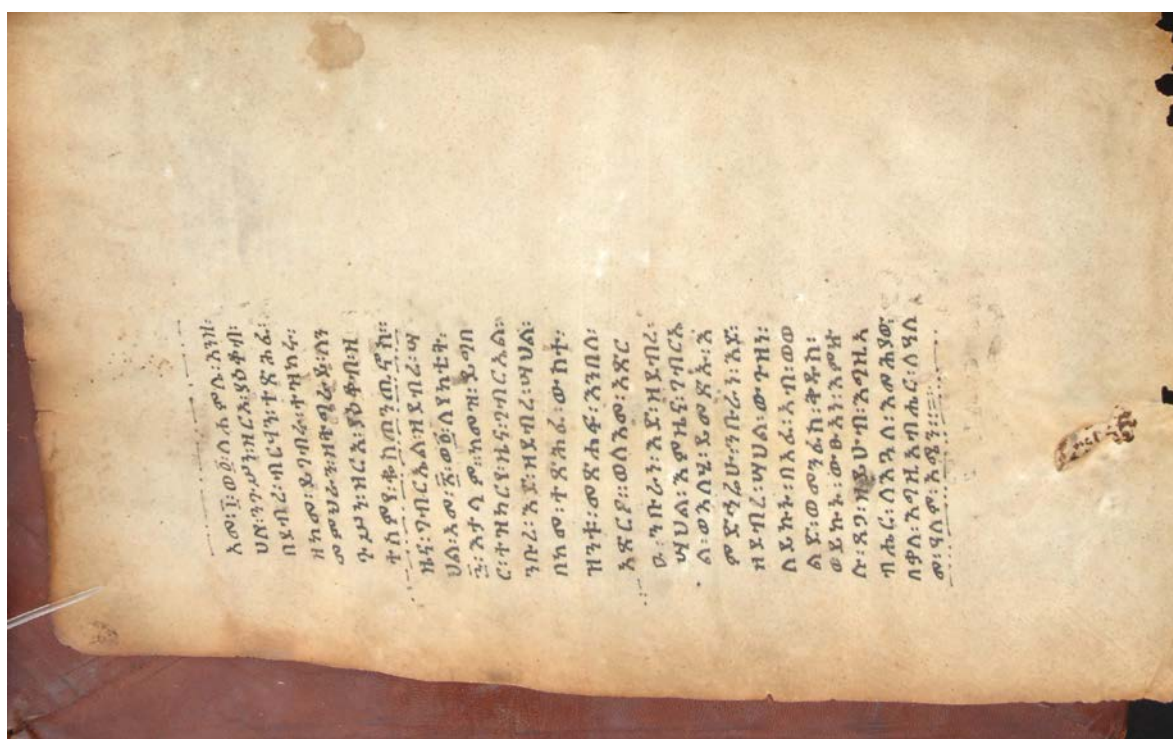 አመ፡፲፡ወ፬ለሐምሌ፡እንዘ፡
ሀለ፡ንጉሥነ፡ዘርአ፡ያዕቆብ፡
በደብረ፡ብርሃን፡ተጽሕፈ፡
ዘከመ፡ይገብሩ፡ተዝካሮ፡
መምህራን፡ዘትግራይ፡ለን
ጉሥነ፡ዘርአ፡ያዕቆብ፡ዘ
ተሰምየ፡ቆስጠንጢኖስ።
ዜና፡ገብርኤል፡ዘደብረ፡ሣ
ህል፡አመ፡፳ወ፬ለየካቲት፡
ከመዝ፡ይግበ
ር፡ተዝካርየ፡ዜና፡ገብርኤል፡
ንቡረ፡እድ፡ዘደብረ፡ሣህል፡
በከመ፡ተጽሕፈ፡ውስተ፡
ዝንቱ፡መጽሐፍ፡እንበለ፡
አጽርዖ፡ወለእመ፡አጽር
ዑ፡ንቡራነ፡እድ፡ዘደብረ፡
ሣህል፡እምዜና፡ገብርኤ
ል፡ወእለሂ፡ይመጽኡ፡እ
ምድኅሬሁ፡ንቡራነ፡እድ፡
ዘደብረ፡ሣህል፡ውጉዛነ፡
ለይኩኑ፡በአፈ፡አብ፡ወወ
ልድ፡ወመንፈስ፡ቅዱስ፡
ወይኩኑ፡ውፁአነ፡እምኵ
ሉ፡ጸጋ፡ዘይሁብ፡እግዚአ
ብሔር፡ለእጓለ፡እመሕያው፡
በቃለ፡እግዚአብሔር፡ለዓለ
መ፡ዓለም፡አሜን።